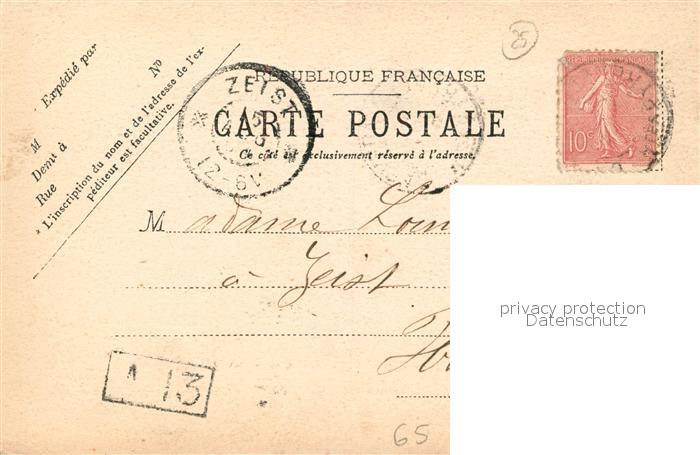 25
Expédié par
N⁰
M
Demt à
Rue
* L'inscription du nom et de l'adresse de l'ex-
péditeur est facultative.
ZEIST
12-6V
RÉPUBLIQUE FRANÇAISE
CARTE POSTALE
Ce côté est exclusivement réservé à l'adresse.
REPUBLIQUE FRANÇAISE
10c
Madame
à Zeist
privacy protection
Datenschutz
A 13
65